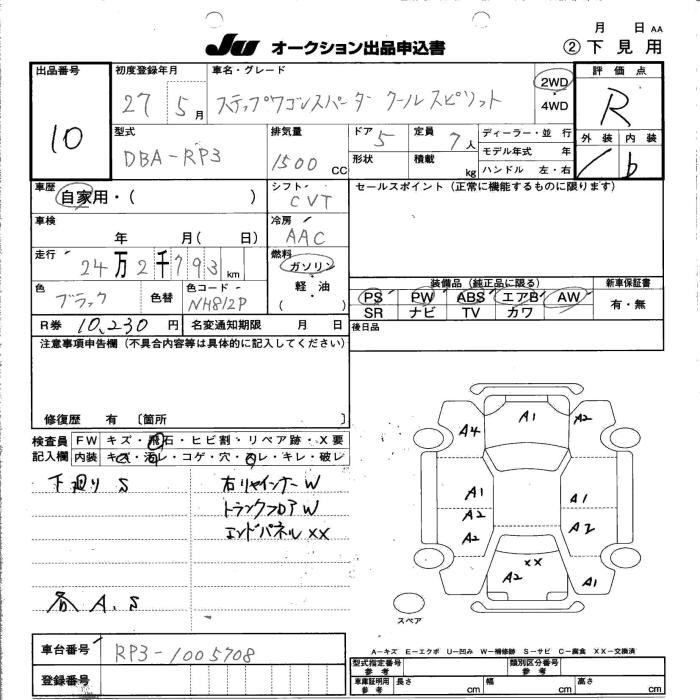 月 日 AA
Ju オークション出品申込書
② 下見用
出品番号 初度登録年月 車名・グレード 評価点
10 27 5月 ステップワゴンスパーダ クールスピリット 2WD・4WD R
外装 内装
b
型式 排気量 ドア 5 定員 7人 ディーラー・並行
DBA-RP3 1500 CC 形状 積載 kg モデル年式 年
ハンドル 左・右
車歴 シフト セールスポイント (正常に機能するものに限ります)
自家用・( ) CVT
車検 冷房
年 月( 日) AAC
走行 燃料
24万2千793 km ガソリン
軽油
( )
色 ブラック 色替 色コード NH812P
装備品 (純正品に限る) 新車保証書
PS PW ABS エアB AW 有・無
SR ナビ TV カワ
R券 10,230円 名変通知期限 月 日
後日品
注意事項申告欄 (不具合内容等は具体的に記入してください)
修復歴 有 〔箇所 〕
検査員記入欄 FW キズ・飛石・ヒビ割・リペア跡・X要
内装 キズ・汚レ・コゲ・穴・スレ・キレ・破レ
下廻り S 右リヤインナー W
トランクフロア W
エンドパネル XX
各 A.S
A1
A4 A2
A1 A1
A2 A2
A2
XX
A2 A1
スペア
A-キズ E-エクボ U-凹み W-補修跡 S-サビ C-腐食 XX-交換済
車台番号 RP3-1005708
登録番号
型式指定番号 参考 類別区分番号 参考
車庫証明用 参考 長さ cm 幅 cm 高さ cm